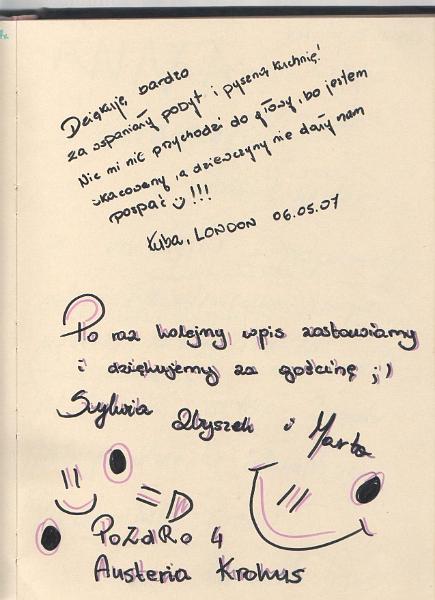 Dziękuję bardzo
za wspaniały pobyt i pyszną kuchnię!
Nic mi nie przychodzi do głowy, bo jestem
skacowany, a dziewczyny nie dały nam
pospać !!!
Kuba, LONDON 06.05.07
Po raz kolejny wpis zostawiamy
i dziękujemy za gościnę ;)
Sylwia Zbyszek i Marta
=D
PoZdRo 4
Austeria Krokus